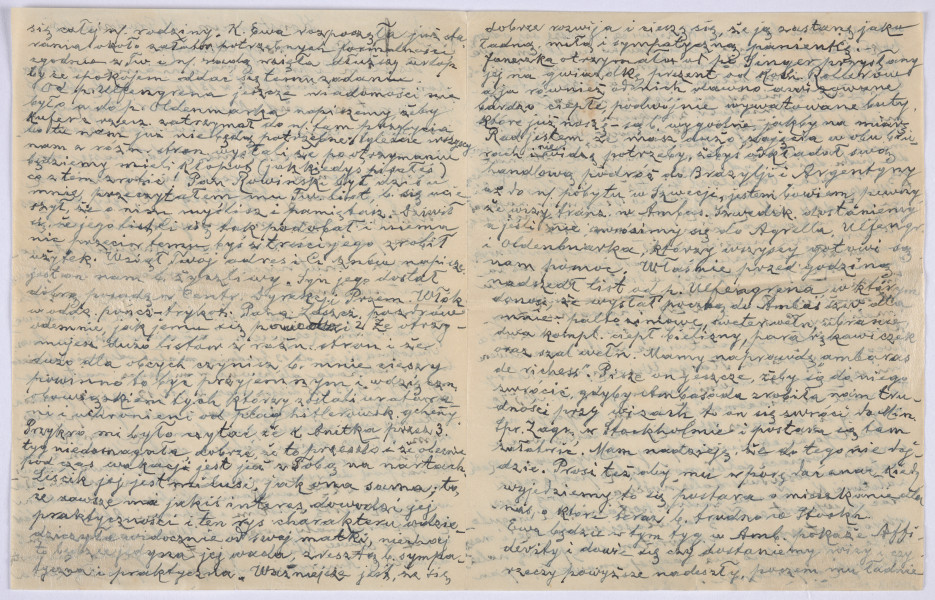 się całej n/. rodziny. K. Ewa rozpoczęła już sta-
rania około załatw. potrzebnych formalności
zgodnie z Tw. i n/. wolą wzięła dłuższy urlop
by ze spokojem oddać się temu zadaniu.
Od p. Ulfengrena jeszcze wiadomości nie
było a do p. Oldenmarka napiszemy żeby
kufer z rzecz. zatrzymał do n/. tam przybycia
bo tu nam już nie będą potrzebne, tyle że wszyscy
nam z różn. stron wysłali że po otrzymaniu
będziemy mieli kłopot (jak kiedyś pisałeś)
co z tem zrobić! Pan Rowiński był dziś u
mnie, przeczytałem mu Tw. list, b. się ucie-
szył, że o nim myślisz i pamiętasz.
się, że jego listki Ci się tak podobał i niema
nic przeciw temu byś z treści jego zrobił
użytek. Wziął Twój adres i Ci znów napisze,
jest on nam b. życzliwy. Syn jego dostał
dobrą posadę w Centr. Dyrekcji Przem. Włók.
w oddz. pończ.-trykot. Pana Zaszcz. pozdrów
odemnie, jak jemu się powodzi? Że otrzy-
mujesz dużo listów z różn. stron i że
dużo dla obcych czynisz b. mnie cieszy
powinno to być przyjemnym i wdzięcznym
obowiązkiem tych którzy zostali uratowa-
ni i uchronieni od piekła hitlerowsk. gehenny.
Przykro mi było czytać że k. Anitka przez 3
tyg. niedomagała dobrze, że to przeszło a że obecnie
pod czas wakacji jest już z Tobą na nartach,
liścik jej jest milusi, jak ona sama; to,
że zawsze ma jakiś interes dowodzi jej
praktyczności i ten rys charakteru odzie-
dziczyła widocznie od swej matki, niechaj
to będzie jedyną jej wadą, zresztą b. sympa-
tyczna i praktyczna. Ważniejsze jest, że się
dobrze rozwija i cieszę się, że ją zastanę jako
ładną, miłą i sympatyczną panienkę.
Janeczka otrzymała od p. Singer przysłany
jej na gwiazdk. prezent od Koch. Rellerów
a ja również od nich dawno awizowane
bardzo ciepłe podwójnie wywatowane buty,
które już noszę są b. wygodne, jakby na miarę.
Rad jestem że masz dużo zajęcia w obu biu-
rach i nie widzę potrzeby, żebyś odkładał swoją
handlową podróż do Brazylji i Argentyny
aż do n/. pobytu w Szwecji, jestem bowiem pewny
że wizy tranz. w Ambas. Szwedzk. dostaniemy
a jeśli nie, zwrócimy się do Agrella, Ulfengr.
i Oldenmarka, którzy wszyscy gotowi są
nam pomóc. Właśnie przed godziną
nadszedł list od p. Ulfengrena w którym
donosi że wysłał pocztą do Ambas. Szw. dla
mnie: palto zimowe, sweter wełn. ubranie
dwa kompl. ciepł. bielizny, para rękawiczek
oraz szal wełn. Mamy naprawdę „ambaras
de richess”. Pisze on jeszcze, żeby się do niego
zwrócić, gdyby Ambasada zrobiła nam tru-
dności przy wizach to on się zwróci do Min.
Spr. Zagr. w Stockholmie i postara się tam
załatw. Mam nadzieję, że do tego nie doj-
dzie. Prosi też aby mu w porę dać znać kiedy
wyjedziemy to się postara o mieszkanie dla
nas, o które teraz b. trudno w Stockh.
Ewa będzie w tym tyg. w Amb. pokaże Affi-
dewity i dowie się czy dostaniemy wizy i czy
rzeczy powyższe nadeszły, poczem mu ładnie